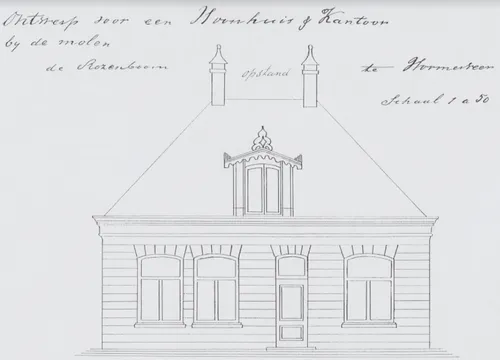 Ontwerp voor een Woonhuis & Kantoor
by de molen
de Rozenboom te Wormerveer
opstand
Schaal 1 a 50